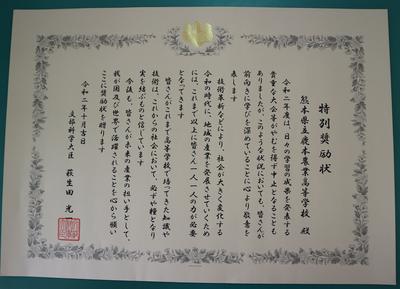 特別奨励状
熊本県立鹿本農業高等学校 殿
令和二年度は、日々の学習の成果を発表する
貴重な大会等がやむを得ず中止となることも
ありましたが、このような状況においても、皆さんが
前向きに学びを深めていることに心より敬意を
表します
技術革新などにより、社会が大きく変化する
令和の時代に、地域の産業を発展させていくため
には、これまで以上に皆さん一人一人の力が必要
となってきます
皆さんがこれまで高等学校で培ってきた知識や
技術は、これからの社会において、必ずや糧となり
実を結ぶものと信じています
今後も、皆さんが未来の産業の担い手として、
我が国及び世界で活躍されることを心から願い
ここに奨励状を贈ります
令和二年十月吉日
文部科学大臣 萩生田 光一